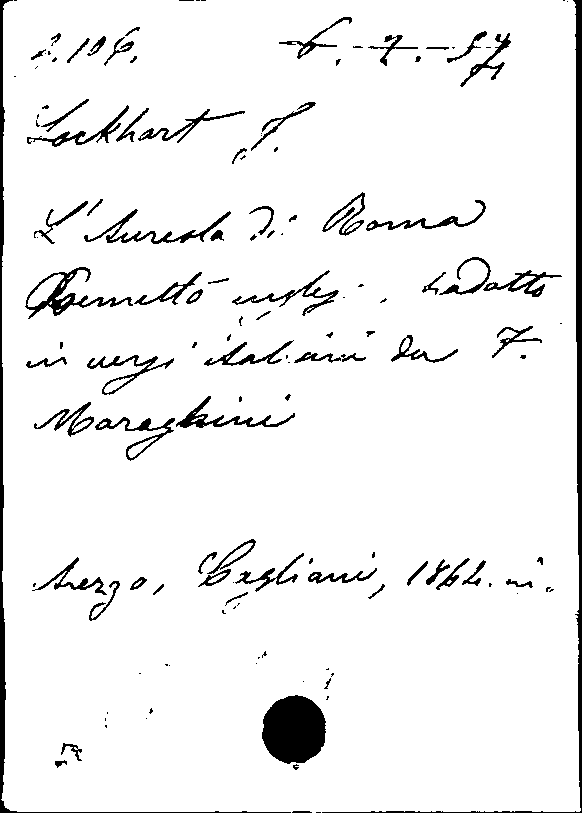 2.106. 6. 7. 54
Lockhart J.
L' Aureola di Roma
Poemetto ingles. tradotto
in versi italiani da F.
Maraghini
Arezzo, Cagliani, 1864. in.